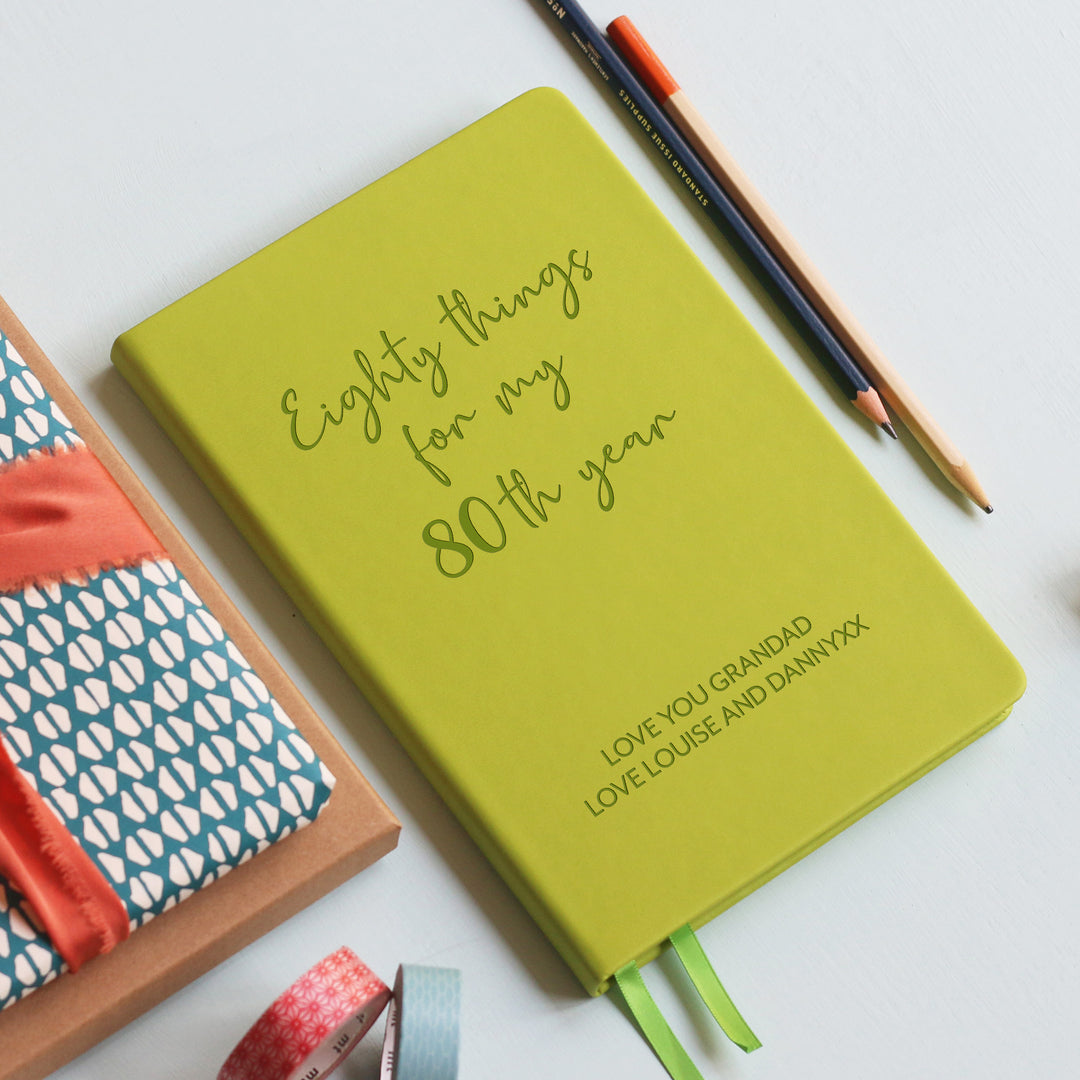 Eighty things
for my
80th year
LOVE YOU GRANDAD
LOVE LOUISE AND DANNYXX
STANDARD ISSUE SUPPLIES
mt